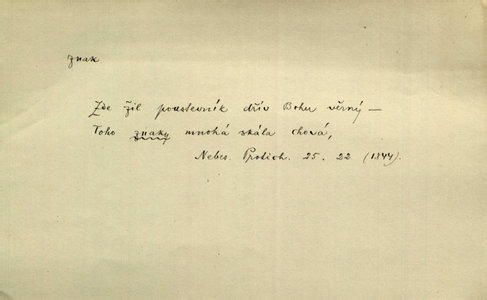 znak
Zde žil poustevník dřív Bohu věrný —
Toho znaky mnohá skála chová,
Nebes. Protich. 25. 22 (1844).